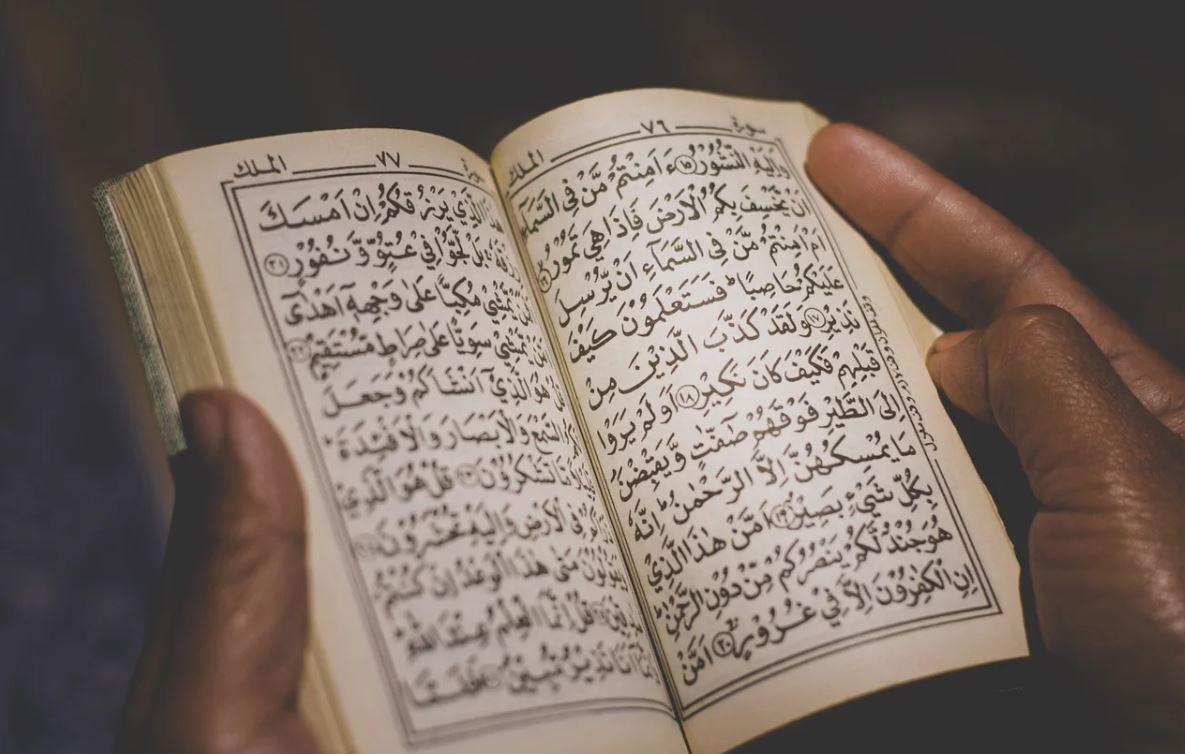 سورة ٧٦ الملك
وَاِلَيْهِ النُّشُوْرُ ١٥ ءَاَمِنْتُمْ مَّنْ فِي السَّمَآءِ
اَنْ يَّخْسِفَ بِكُمُ الْاَرْضَ فَاِذَا هِيَ تَمُوْرُ ١٦
اَمْ اَمِنْتُمْ مَّنْ فِي السَّمَآءِ اَنْ يُّرْسِلَ
عَلَيْكُمْ حَاصِبًا ؕ فَسَتَعْلَمُوْنَ كَيْفَ
نَذِيْرِ ١٧ وَلَقَدْ كَذَّبَ الَّذِيْنَ مِنْ
قَبْلِهِمْ فَكَيْفَ كَانَ نَكِيْرِ ١٨ اَوَلَمْ يَرَوْا
اِلَى الطَّيْرِ فَوْقَهُمْ صٰٓفّٰتٍ وَّيَقْبِضْنَ
مَا يُمْسِكُهُنَّ اِلَّا الرَّحْمٰنُ ؕ اِنَّهٗ
بِكُلِّ شَيْءٍ بَصِيْرٌ ١٩ اَمَّنْ هٰذَا الَّذِيْ
هُوَ جُنْدٌ لَّكُمْ يَنْصُرُكُمْ مِّنْ دُوْنِ الرَّحْمٰنِ ؕ
اِنِ الْكٰفِرُوْنَ اِلَّا فِيْ غُرُوْرٍ ٢٠ اَمَّنْ
٧٧ الملك
هٰذَا الَّذِيْ يَرْزُقُكُمْ اِنْ اَمْسَكَ
رِزْقَهٗ ۚ بَلْ لَّجُّوْا فِيْ عُتُوٍّ وَّنُفُوْرٍ ٢١
يَّمْشِيْ مُكِبًّا عَلٰى وَجْهِهٖٓ اَهْدٰىٓ
يَّمْشِيْ سَوِيًّا عَلٰى صِرَاطٍ مُّسْتَقِيْمٍ ٢٢
هُوَ الَّذِيْٓ اَنْشَاَكُمْ وَجَعَلَ
السَّمْعَ وَالْاَبْصَارَ وَالْاَفْئِدَةَ ؕ
مَّا تَشْكُرُوْنَ ٢٣ قُلْ هُوَ الَّذِيْ
فِي الْاَرْضِ وَاِلَيْهِ تُحْشَرُوْنَ ٢٤
وَيَقُوْلُوْنَ مَتٰى هٰذَا الْوَعْدُ اِنْ كُنْتُمْ
صٰدِقِيْنَ ٢٥ قُلْ اِنَّمَا الْعِلْمُ عِنْدَ اللّٰهِ
اَنَا نَذِيْرٌ مُّبِيْنٌ ٢٦ فَلَمَّا